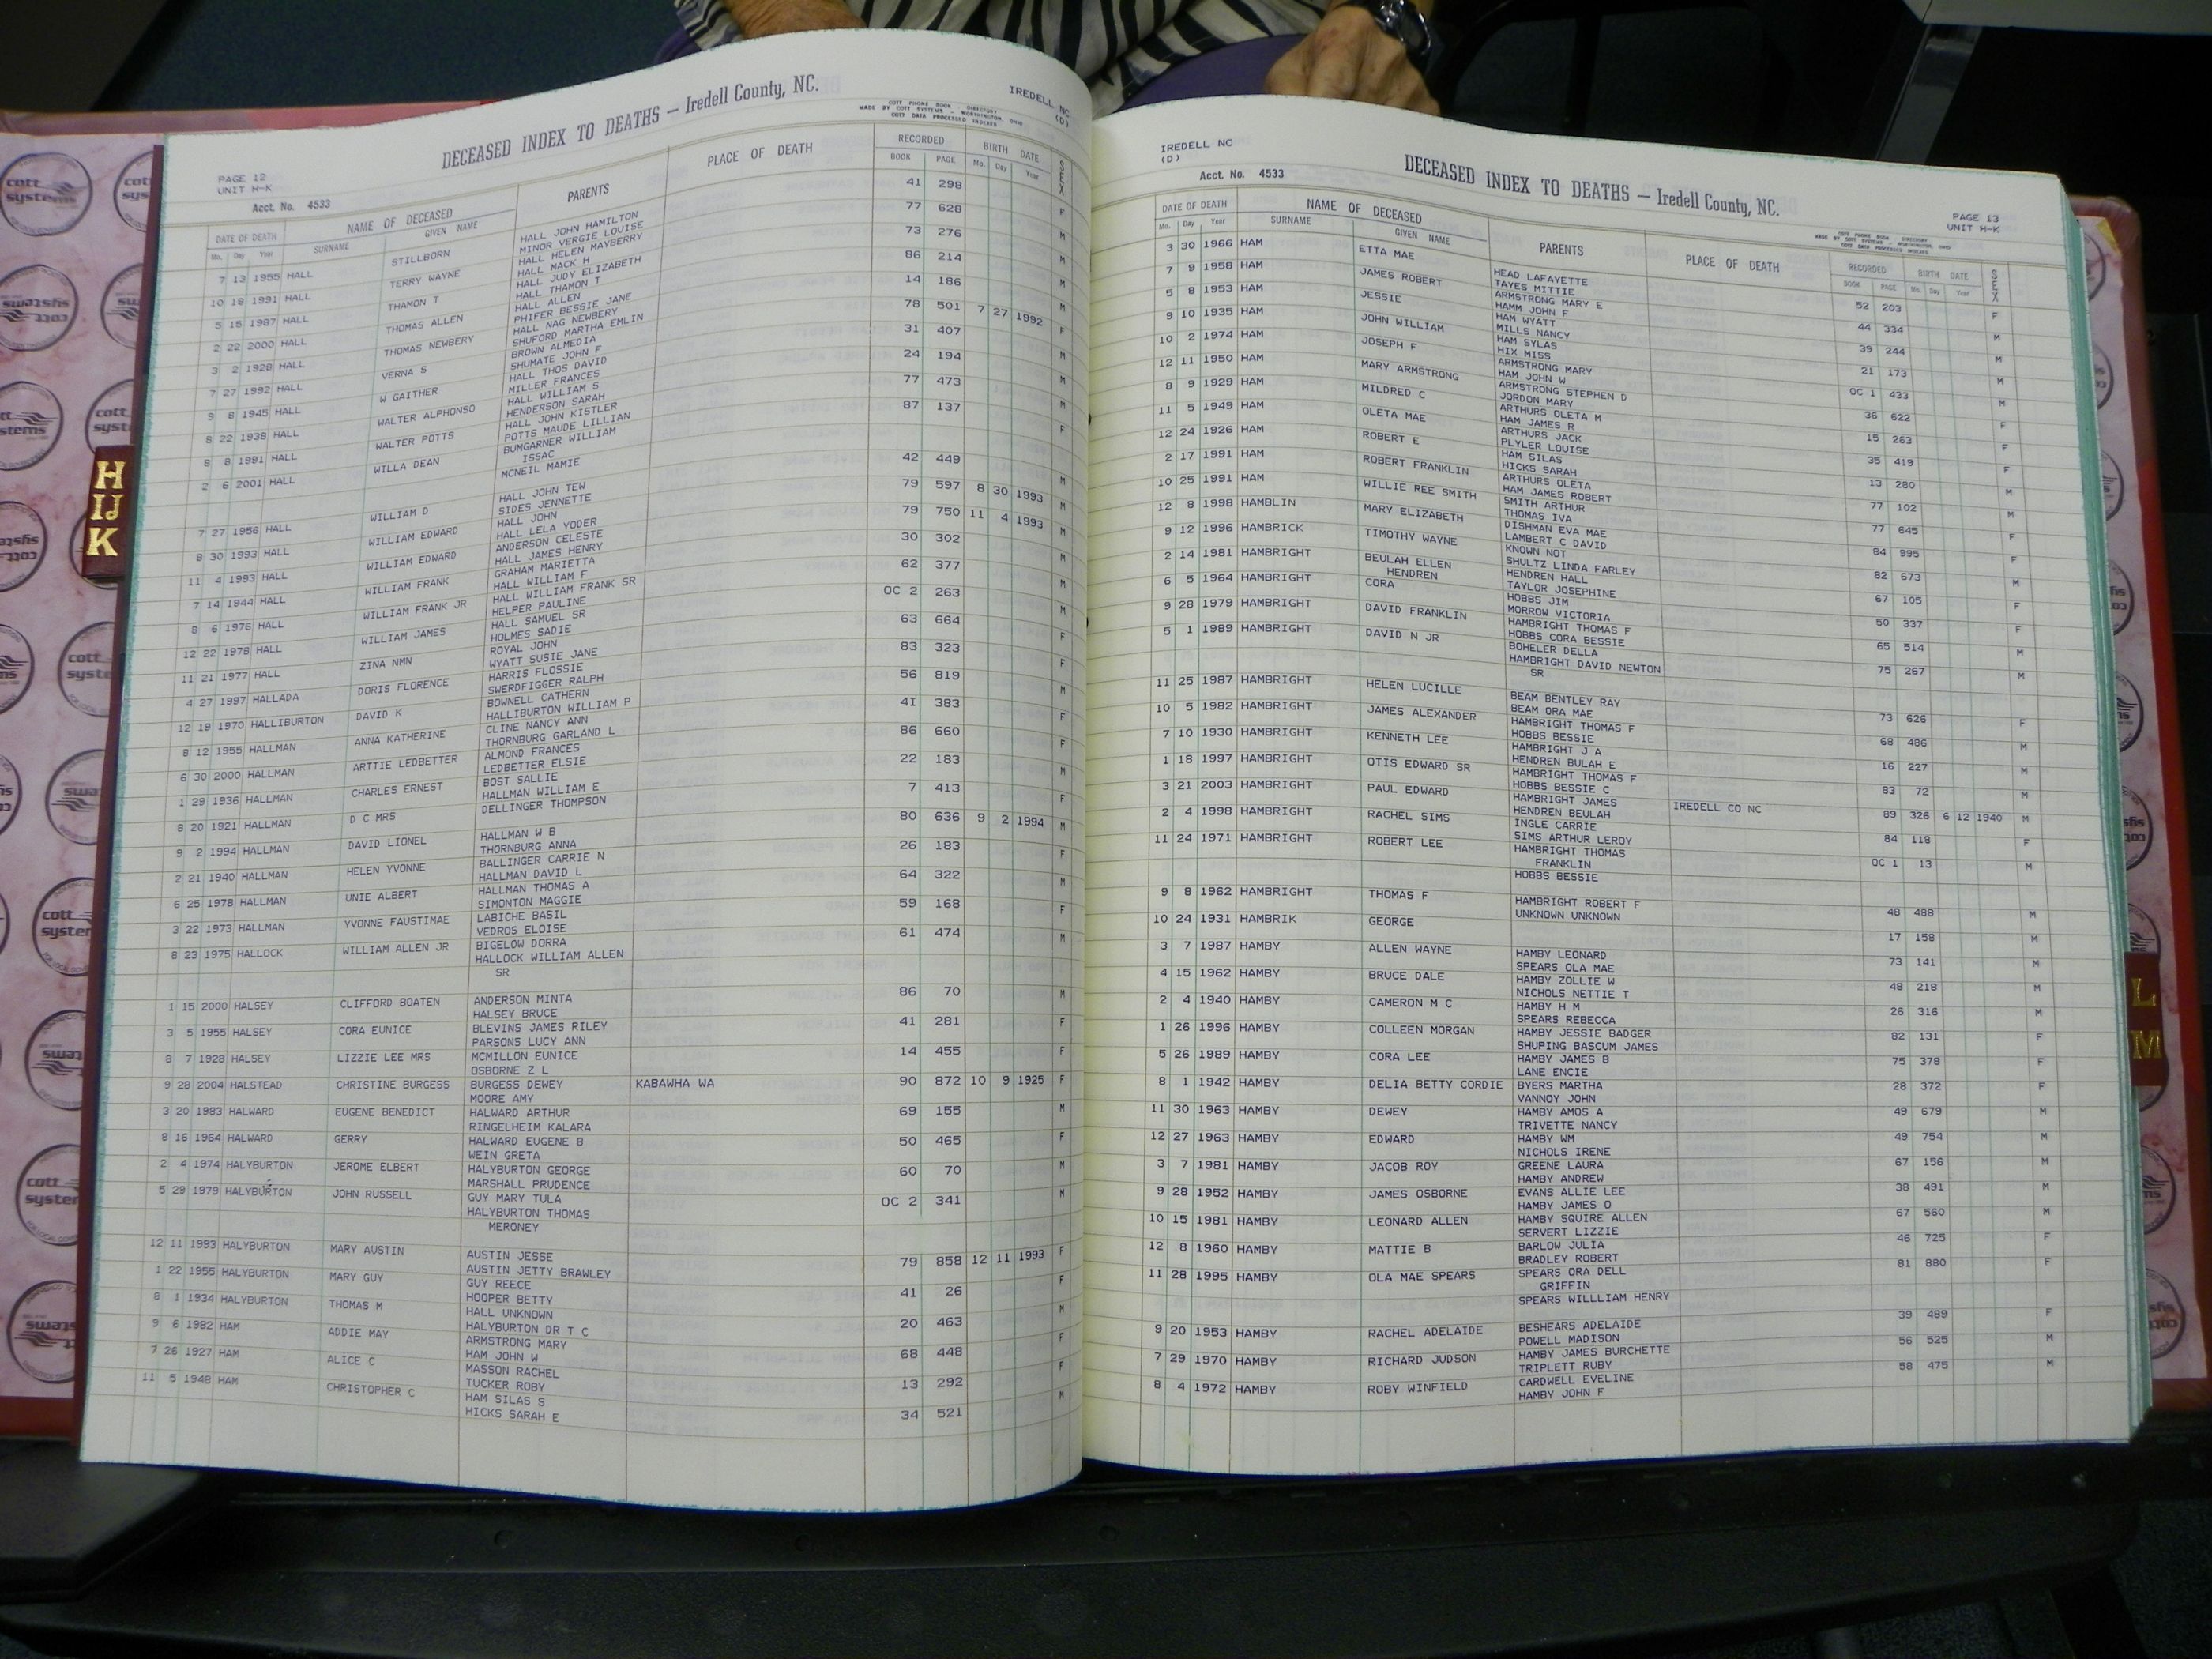 DECEASED INDEX TO DEATHS — Iredell County, NC.
IREDELL NC
(D)
COTT PHONE BOOK DIRECTORY
MADE BY COTT SYSTEMS - WORTHINGTON, OHIO
COTT DATA PROCESSED INDEXES
PAGE 12
UNIT H-K
Acct. No. 4533
DATE OF DEATH NAME OF DECEASED PARENTS PLACE OF DEATH RECORDED BIRTH DATE SEX
Mo. Day Year SURNAME GIVEN NAME BOOK PAGE Mo. Day Year
7 13 1955 HALL STILLBORN HALL JOHN HAMILTON 41 298 F
MINOR VERGIE LOUISE
10 18 1991 HALL TERRY WAYNE HALL HELEN MAYBERRY 77 628 M
HALL MACK H
5 15 1987 HALL THAMON T HALL JUDY ELIZABETH 73 276 M
HALL THAMON T
2 22 2000 HALL THOMAS ALLEN HALL ALLEN 86 214 M
PHIFER BESSIE JANE
3 2 1928 HALL THOMAS NEWBERY HALL NAG NEWBERY 14 186 M
SHUFORD MARTHA EMLIN
7 27 1992 HALL VERNA S BROWN ALMEDIA 78 501 7 27 1992 F
SHUMATE JOHN F
9 8 1945 HALL W GAITHER HALL THOS DAVID 31 407 M
MILLER FRANCES
8 22 1938 HALL WALTER ALPHONSO HALL WILLIAM S 24 194 M
HENDERSON SARAH
8 8 1991 HALL WALTER POTTS HALL JOHN KISTLER 77 473 M
POTTS MAUDE LILLIAN
2 6 2001 HALL WILLA DEAN BUMGARNER WILLIAM 87 137 F
ISSAC
MCNEIL MAMIE
7 27 1956 HALL WILLIAM D HALL JOHN TEW 42 449 M
SIDES JENNETTE
8 30 1993 HALL WILLIAM EDWARD HALL JOHN 79 597 8 30 1993 M
HALL LELA YODER
11 4 1993 HALL WILLIAM EDWARD ANDERSON CELESTE 79 750 11 4 1993 M
HALL JAMES HENRY
7 14 1944 HALL WILLIAM FRANK GRAHAM MARIETTA 30 302 M
HALL WILLIAM F
8 6 1976 HALL WILLIAM FRANK JR HALL WILLIAM FRANK SR 62 377 M
HELPER PAULINE
12 22 1978 HALL WILLIAM JAMES HALL SAMUEL SR OC 2 263 M
HOLMES SADIE
11 21 1977 HALL ZINA NMN ROYAL JOHN 63 664 F
WYATT SUSIE JANE
4 27 1997 HALLADA DORIS FLORENCE HARRIS FLOSSIE 83 323 F
SWERDFIGGER RALPH
12 19 1970 HALLIBURTON DAVID K BOWNELL CATHERN 56 819 M
HALLIBURTON WILLIAM P
8 12 1955 HALLMAN ANNA KATHERINE CLINE NANCY ANN 41 383 F
THORNBURG GARLAND L
6 30 2000 HALLMAN ARTTIE LEDBETTER ALMOND FRANCES 86 660 F
LEDBETTER ELSIE
1 29 1936 HALLMAN CHARLES ERNEST BOST SALLIE 22 183 M
HALLMAN WILLIAM E
8 20 1921 HALLMAN D C MRS DELLINGER THOMPSON 7 413 F
9 2 1994 HALLMAN DAVID LIONEL HALLMAN W B 80 636 9 2 1994 M
THORNBURG ANNA
2 21 1940 HALLMAN HELEN YVONNE BALLINGER CARRIE N 26 183 F
HALLMAN DAVID L
6 25 1978 HALLMAN UNIE ALBERT HALLMAN THOMAS A 64 322 M
SIMONTON MAGGIE
3 22 1973 HALLMAN YVONNE FAUSTIMAE LABICHE BASIL 59 168 F
VEDROS ELOISE
8 23 1975 HALLOCK WILLIAM ALLEN JR BIGELOW DORRA 61 474 M
HALLOCK WILLIAM ALLEN
SR
1 15 2000 HALSEY CLIFFORD BOATEN ANDERSON MINTA 86 70 M
HALSEY BRUCE
3 5 1955 HALSEY CORA EUNICE BLEVINS JAMES RILEY 41 281 F
PARSONS LUCY ANN
8 7 1928 HALSEY LIZZIE LEE MRS MCMILLON EUNICE 14 455 F
OSBORNE Z L
9 28 2004 HALSTEAD CHRISTINE BURGESS BURGESS DEWEY KABAWHA WA 90 872 10 9 1925 F
MOORE AMY
3 20 1983 HALWARD EUGENE BENEDICT HALWARD ARTHUR 69 155 M
RINGELHEIM KALARA
8 16 1964 HALWARD GERRY HALWARD EUGENE B 50 465 F
WEIN GRETA
2 4 1974 HALYBURTON JEROME ELBERT HALYBURTON GEORGE 60 70 M
MARSHALL PRUDENCE
5 29 1979 HALYBURTON JOHN RUSSELL GUY MARY TULA OC 2 341 M
HALYBURTON THOMAS
MERONEY
12 11 1993 HALYBURTON MARY AUSTIN AUSTIN JESSE 79 858 12 11 1993 F
AUSTIN JETTY BRAWLEY
1 22 1955 HALYBURTON MARY GUY GUY REECE 41 26 F
HOOPER BETTY
8 1 1934 HALYBURTON THOMAS M HALL UNKNOWN 20 463 M
HALYBURTON DR T C
9 6 1982 HAM ADDIE MAY ARMSTRONG MARY 68 448 F
HAM JOHN W
7 26 1927 HAM ALICE C MASSON RACHEL 13 292 F
TUCKER ROBY
11 5 1948 HAM CHRISTOPHER C HAM SILAS S 34 521 M
HICKS SARAH E
IREDELL NC
(D)
DECEASED INDEX TO DEATHS — Iredell County, NC.
Acct. No. 4533
PAGE 13
UNIT H-K
COTT PHONE BOOK DIRECTORY
MADE BY COTT SYSTEMS - WORTHINGTON, OHIO
COTT DATA PROCESSED INDEXES
DATE OF DEATH NAME OF DECEASED PARENTS PLACE OF DEATH RECORDED BIRTH DATE SEX
Mo. Day Year SURNAME GIVEN NAME BOOK PAGE Mo. Day Year
3 30 1966 HAM ETTA MAE HEAD LAFAYETTE 52 203 F
TAYES MITTIE
7 9 1958 HAM JAMES ROBERT ARMSTRONG MARY E 44 334 M
HAMM JOHN F
5 8 1953 HAM JESSIE HAM WYATT 39 244 M
MILLS NANCY
9 10 1935 HAM JOHN WILLIAM HAM SYLAS 21 173 M
HIX MISS
10 2 1974 HAM JOSEPH F ARMSTRONG MARY OC 1 433 M
HAM JOHN W
12 11 1950 HAM MARY ARMSTRONG ARMSTRONG STEPHEN D 36 622 F
JORDON MARY
8 9 1929 HAM MILDRED C ARTHURS OLETA M 15 263 F
HAM JAMES R
11 5 1949 HAM OLETA MAE ARTHURS JACK 35 419 F
PLYLER LOUISE
12 24 1926 HAM ROBERT E HAM SILAS 13 280 M
HICKS SARAH
2 17 1991 HAM ROBERT FRANKLIN ARTHURS OLETA 77 102 M
HAM JAMES ROBERT
10 25 1991 HAM WILLIE REE SMITH SMITH ARTHUR 77 645 F
THOMAS IVA
12 8 1998 HAMBLIN MARY ELIZABETH DISHMAN EVA MAE 84 995 F
LAMBERT C DAVID
9 12 1996 HAMBRICK TIMOTHY WAYNE KNOWN NOT 82 673 M
SHULTZ LINDA FARLEY
2 14 1981 HAMBRIGHT BEULAH ELLEN HENDREN HALL 67 105 F
HENDREN TAYLOR JOSEPHINE
6 5 1964 HAMBRIGHT CORA HOBBS JIM 50 337 F
MORROW VICTORIA
9 28 1979 HAMBRIGHT DAVID FRANKLIN HAMBRIGHT THOMAS F 65 514 M
HOBBS CORA BESSIE
5 1 1989 HAMBRIGHT DAVID N JR BOHELER DELLA 75 267 M
HAMBRIGHT DAVID NEWTON
SR
11 25 1987 HAMBRIGHT HELEN LUCILLE BEAM BENTLEY RAY 73 626 F
BEAM ORA MAE
10 5 1982 HAMBRIGHT JAMES ALEXANDER HAMBRIGHT THOMAS F 68 486 M
HOBBS BESSIE
7 10 1930 HAMBRIGHT KENNETH LEE HAMBRIGHT J A 16 227 M
HENDREN BULAH E
1 18 1997 HAMBRIGHT OTIS EDWARD SR HAMBRIGHT THOMAS F 83 72 M
HOBBS BESSIE C
3 21 2003 HAMBRIGHT PAUL EDWARD HAMBRIGHT JAMES IREDELL CO NC 89 326 6 12 1940 M
HENDREN BEULAH
2 4 1998 HAMBRIGHT RACHEL SIMS INGLE CARRIE 84 118 F
SIMS ARTHUR LEROY
11 24 1971 HAMBRIGHT ROBERT LEE HAMBRIGHT THOMAS OC 1 13 M
FRANKLIN
HOBBS BESSIE
9 8 1962 HAMBRIGHT THOMAS F HAMBRIGHT ROBERT F 48 488 M
UNKNOWN UNKNOWN
10 24 1931 HAMBRIK GEORGE 17 158 M
3 7 1987 HAMBY ALLEN WAYNE HAMBY LEONARD 73 141 M
SPEARS OLA MAE
4 15 1962 HAMBY BRUCE DALE HAMBY ZOLLIE W 48 218 M
NICHOLS NETTIE T
2 4 1940 HAMBY CAMERON M C HAMBY H M 26 316 M
SPEARS REBECCA
1 26 1996 HAMBY COLLEEN MORGAN HAMBY JESSIE BADGER 82 131 F
SHUPING BASCUM JAMES
5 26 1989 HAMBY CORA LEE HAMBY JAMES B 75 378 F
LANE ENCIE
8 1 1942 HAMBY DELIA BETTY CORDIE BYERS MARTHA 28 372 F
VANNOY JOHN
11 30 1963 HAMBY DEWEY HAMBY AMOS A 49 679 M
TRIVETTE NANCY
12 27 1963 HAMBY EDWARD HAMBY WM 49 754 M
NICHOLS IRENE
3 7 1981 HAMBY JACOB ROY GREENE LAURA 67 156 M
HAMBY ANDREW
9 28 1952 HAMBY JAMES OSBORNE EVANS ALLIE LEE 38 491 M
HAMBY JAMES O
10 15 1981 HAMBY LEONARD ALLEN HAMBY SQUIRE ALLEN 67 560 M
SERVERT LIZZIE
12 8 1960 HAMBY MATTIE B BARLOW JULIA 46 725 F
BRADLEY ROBERT
11 28 1995 HAMBY OLA MAE SPEARS SPEARS ORA DELL 81 880 F
GRIFFIN
SPEARS WILLLIAM HENRY
9 20 1953 HAMBY RACHEL ADELAIDE BESHEARS ADELAIDE 39 489 F
POWELL MADISON
7 29 1970 HAMBY RICHARD JUDSON HAMBY JAMES BURCHETTE 56 525 M
TRIPLETT RUBY
8 4 1972 HAMBY ROBY WINFIELD CARDWELL EVELINE 58 475 M
HAMBY JOHN F
H
IJ
K
L
M
cott
systems